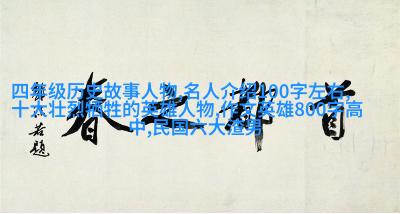 四年级历史故事人物,名人介绍100字左右,
十大壮烈牺牲的英雄人物,作文英雄800字高
中,民国六大渣男
首都之春
郭沫若题